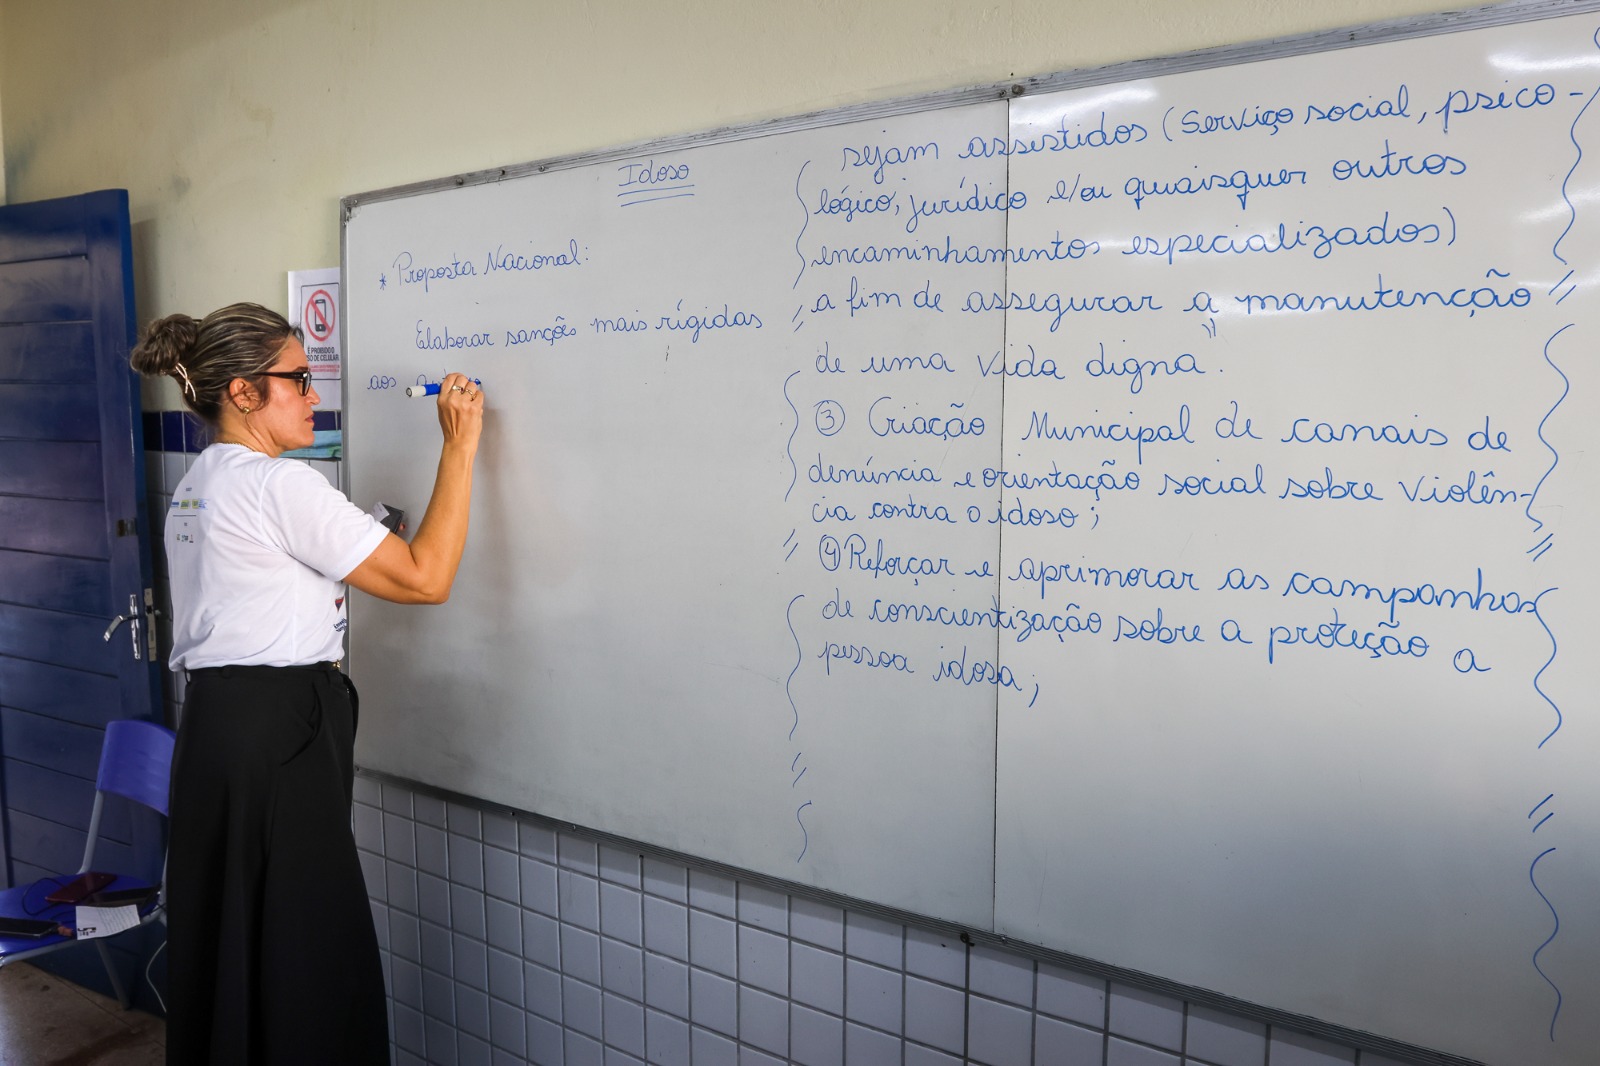 Idoso
* Proposta Nacional:
Elaborar sanções mais rígidas
aos
sejam assistidos (Serviço social, psico-
lógico, jurídico e/ou quaisquer outros
encaminhamentos especializados)
a fim de assegurar a manutenção
de uma vida digna".
③ Criação Municipal de canais de
denúncia e orientação social sobre violên-
cia contra o idoso;
④ Reforçar e aprimorar as campanhas
de conscientização sobre a proteção a
pessoa idosa;
É PROIBIDO O
USO DE CELULAR